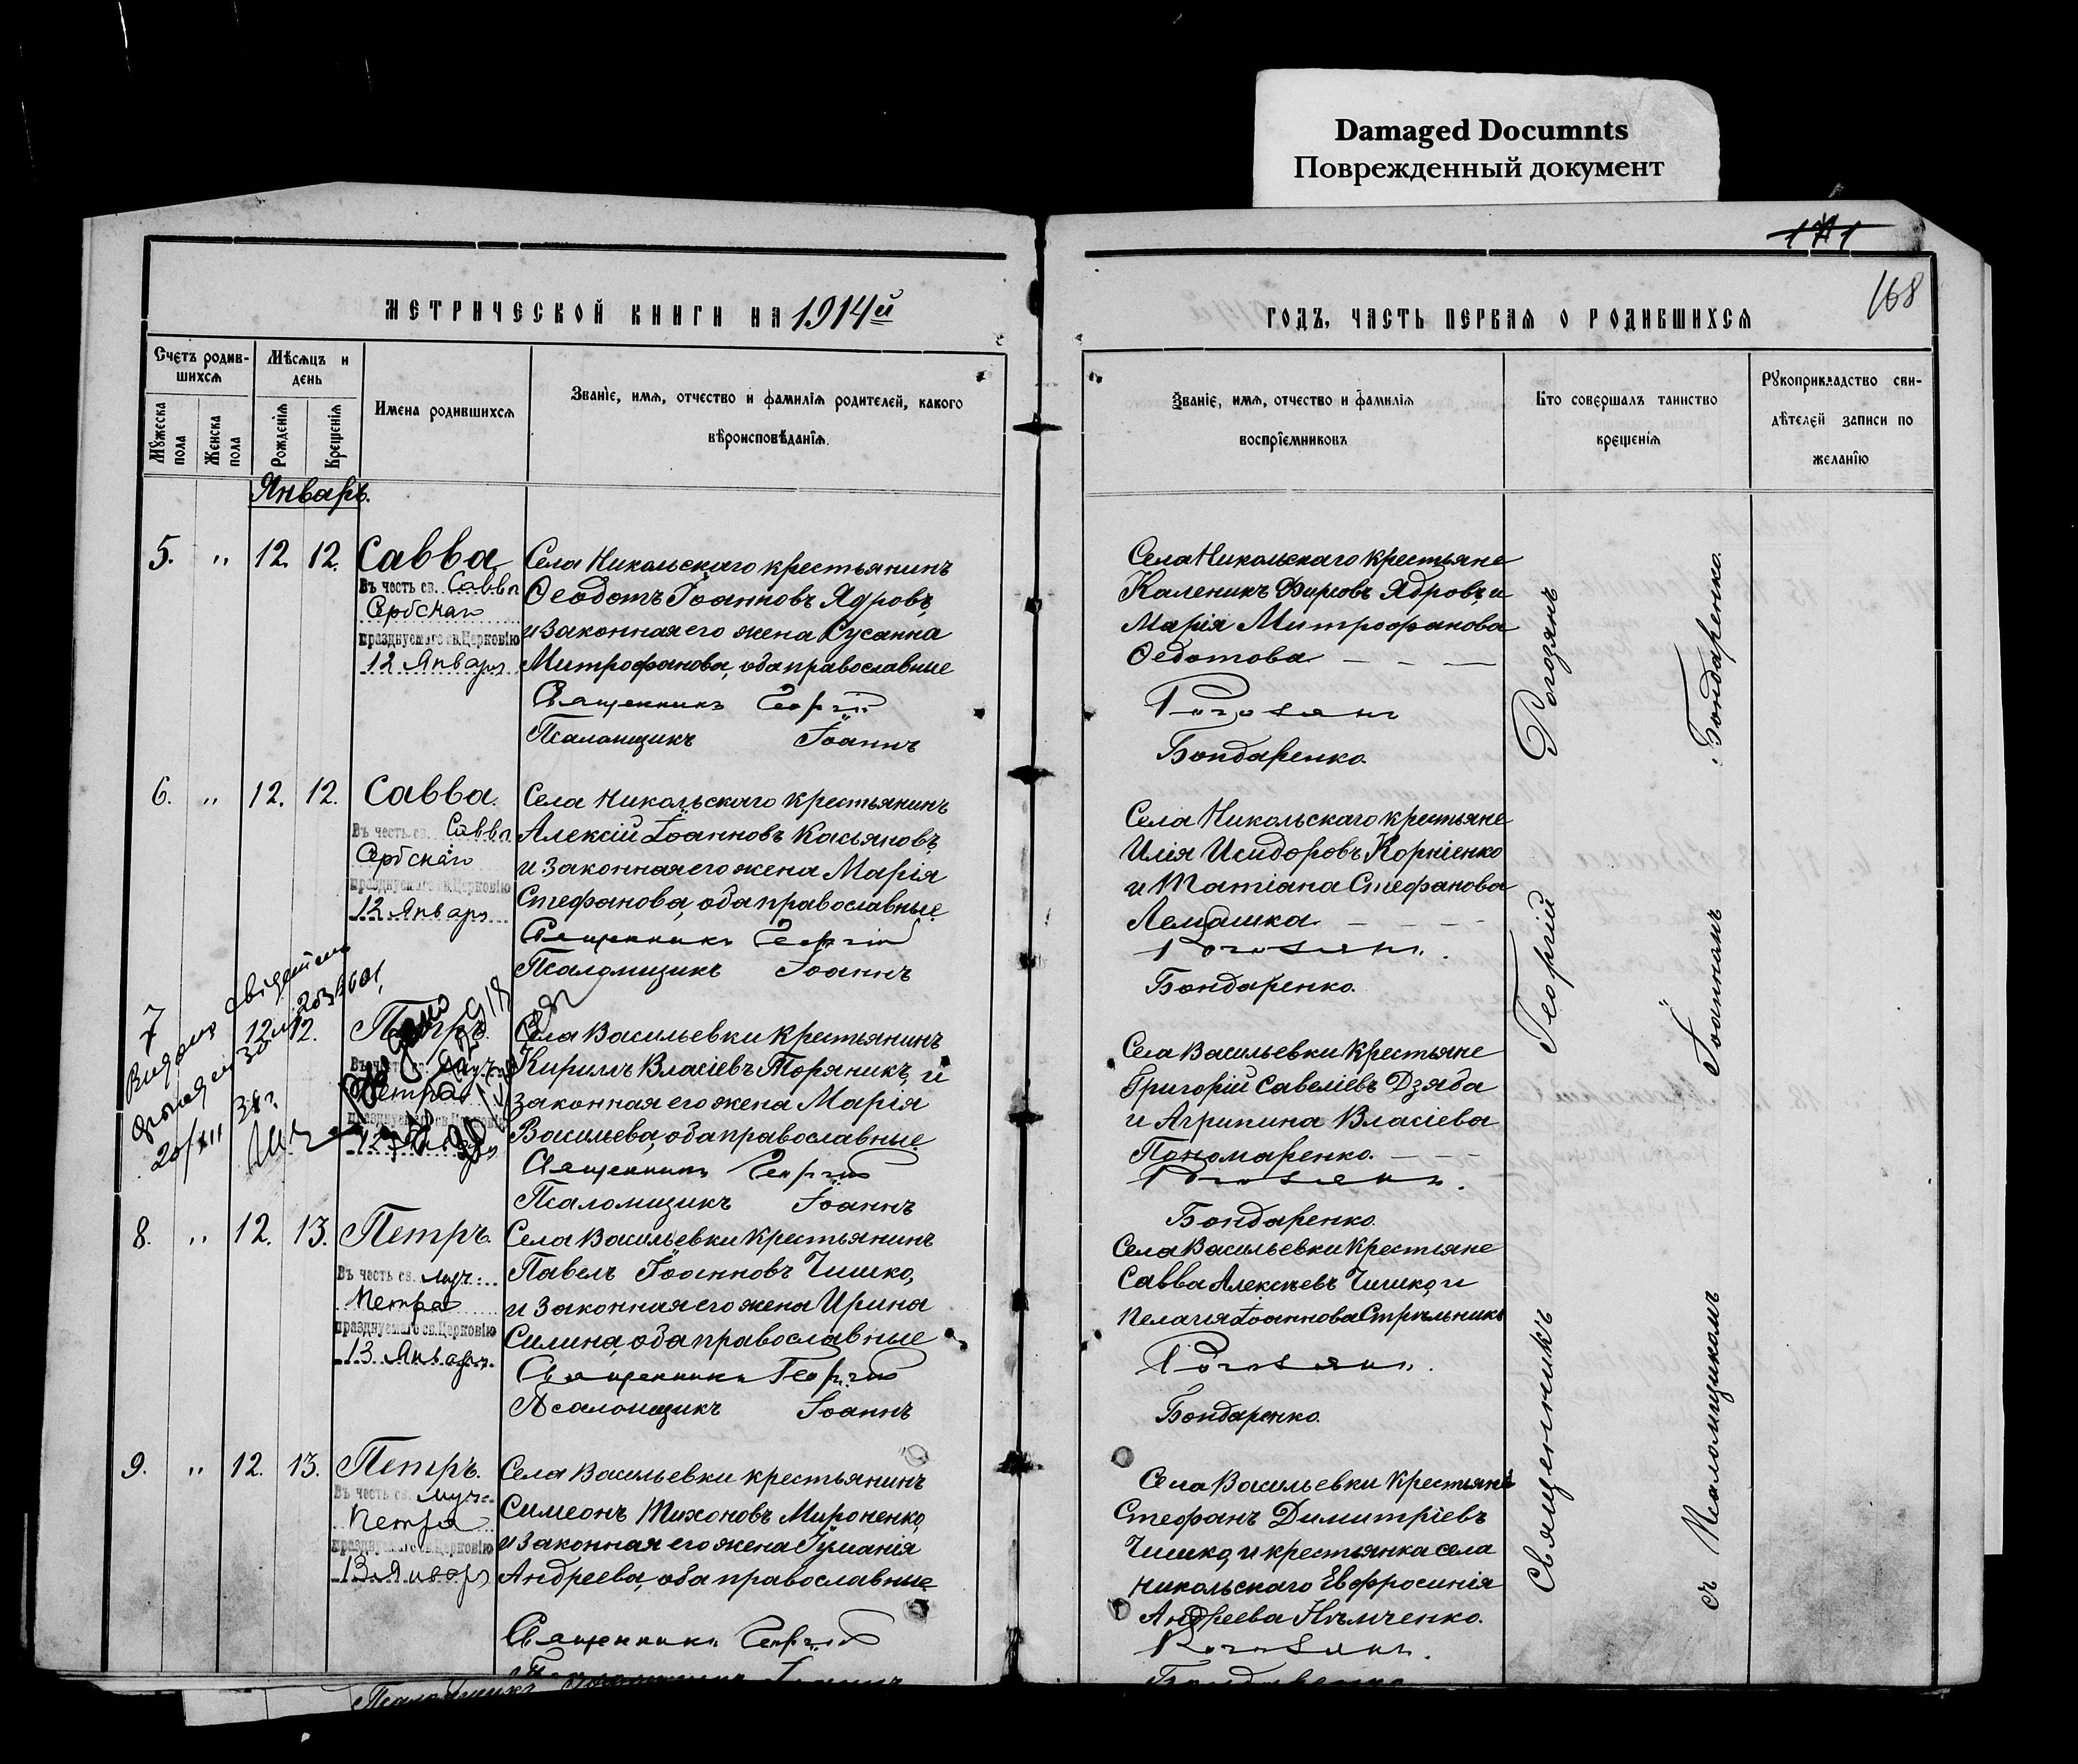 Damaged Documnts
Поврежденный документ
171
168
МЕТРИЧЕСКОЙ КНИГИ НА 1914й
Счетъ родив-
шихся
Мѣсяцъ и
день
Мужеска
пола
Женска
пола
Рожденія
Крещенія
Имена родившихся
Званіе, имя, отчество и фамилія родителей, какого
вѣроисповѣданія.
Январь.
5. " 12. 12. Савва
Въ честь св. Саввы
Сербскаго
празднуемаго св. Церковію
12 Января
Села Никольскаго крестьянинъ
Ѳеодотъ Іоанновъ Ядровъ,
и законная его жена Сусанна
Митрофанова, оба православные
Священникъ Георгій
Псаломщикъ Іоаннъ
6. " 12. 12. Савва.
Въ честь св. Саввы
Сербскаго
празднуемаго св. Церковію
12 Января
Села Никольскаго крестьянинъ
Алексій Іоанновъ Касьяновъ,
и законная его жена Марія
Стефанова, оба православные
Священникъ Георгій
Псаломщикъ Іоаннъ
7 12. 12. Петръ.
Въ честь св.
Петра
празднуемаго св. Церковію
12
20/III 38г.
Села Васильевки крестьянинъ
Кириллъ Власіевъ Торяникъ, и
законная его жена Марія
Васильева, оба православные
Священникъ Георгій
Псаломщикъ Іоаннъ
8. " 12. 13. Петръ.
Въ честь св. муч.
Петра
празднуемаго св. Церковію
13 Января
Села Васильевки крестьянинъ
Павелъ Іоанновъ Чишко,
и законная его жена Ирина
Силина, оба православные
Священникъ Георгій
Псаломщикъ Іоаннъ
9. " 12. 13. Петръ.
Въ честь св. муч.
Петра
празднуемаго св. Церковію
13 Января
Села Васильевки крестьянинъ
Симеонъ Тихоновъ Мироненко,
и законная его жена Іуліанія
Андреева, оба православные
Священникъ Георгій
Псаломщикъ Іоаннъ
ГОДЪ, ЧАСТЬ ПЕРВАЯ О РОДИВШИХСЯ
Званіе, имя, отчество и фамилія
воспріемниковъ
Кто совершалъ таинство
крещенія
Рукоприкладство сви-
дѣтелей записи по
желанію
Села Никольскаго крестьяне
Каленикъ Фирсовъ Ядровъ, и
Марія Митрофанова
Ѳедотова
Рогозянъ
Бондаренко.
Села Никольскаго крестьяне
Илія Исидоровъ Корніенко
и Татіана Стефанова
Лемашка
Рогозянъ.
Бондаренко.
Села Васильевки крестьяне
Григорій Савеліевъ Дзяба
и Агрипина Власіева
Пономаренко.
Рогозянъ.
Бондаренко.
Села Васильевки крестьяне
Савва Алексѣевъ Чишко, и
Пелагія Іоаннова Стрѣльникъ
Рогозянъ.
Бондаренко.
Села Васильевки крестьяне
Стефанъ Димитріевъ
Чишко, и крестьянка села
Никольскаго Евфросинія
Андреева Нѣмченко.
Рогозянъ.
Бондаренко
Священникъ Георгій Рогозянъ
съ Псаломщикомъ Іоанномъ Бондаренко.